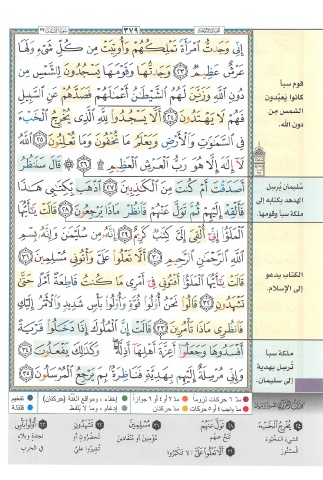 ٣٧٩
إِنِّي وَجَدتُّ امْرَأَةً تَمْلِكُهُمْ وَأُوتِيَتْ مِن كُلِّ شَيْءٍ وَلَهَا
عَرْشٌ عَظِيمٌ ٢٣ وَجَدتُّهَا وَقَوْمَهَا يَسْجُدُونَ لِلشَّمْسِ مِن
دُونِ اللَّهِ وَزَيَّنَ لَهُمُ الشَّيْطَانُ أَعْمَالَهُمْ فَصَدَّهُمْ عَنِ السَّبِيلِ
فَهُمْ لَا يَهْتَدُونَ ٢٤ أَلَّا يَسْجُدُوا لِلَّهِ الَّذِي يُخْرِجُ الْخَبْءَ
فِي السَّمَاوَاتِ وَالْأَرْضِ وَيَعْلَمُ مَا تُخْفُونَ وَمَا تُعْلِنُونَ ٢٥
اللَّهُ لَا إِلَهَ إِلَّا هُوَ رَبُّ الْعَرْشِ الْعَظِيمِ ۩ ٢٦ قَالَ سَنَنظُرُ
أَصَدَقْتَ أَمْ كُنتَ مِنَ الْكَاذِبِينَ ٢٧ اذْهَب بِّكِتَابِي هَذَا
فَأَلْقِهْ إِلَيْهِمْ ثُمَّ تَوَلَّ عَنْهُمْ فَانظُرْ مَاذَا يَرْجِعُونَ ٢٨ قَالَتْ يَا أَيُّهَا
الْمَلَأُ إِنِّي أُلْقِيَ إِلَيَّ كِتَابٌ كَرِيمٌ ٢٩ إِنَّهُ مِن سُلَيْمَانَ وَإِنَّهُ بِسْمِ
اللَّهِ الرَّحْمَنِ الرَّحِيمِ ٣٠ أَلَّا تَعْلُوا عَلَيَّ وَأْتُونِي مُسْلِمِينَ ٣١
قَالَتْ يَا أَيُّهَا الْمَلَأُ أَفْتُونِي فِي أَمْرِي مَا كُنتُ قَاطِعَةً أَمْرًا حَتَّى
تَشْهَدُونِ ٣٢ قَالُوا نَحْنُ أُولُو قُوَّةٍ وَأُولُو بَأْسٍ شَدِيدٍ وَالْأَمْرُ إِلَيْكِ
فَانظُرِي مَاذَا تَأْمُرِينَ ٣٣ قَالَتْ إِنَّ الْمُلُوكَ إِذَا دَخَلُوا قَرْيَةً
أَفْسَدُوهَا وَجَعَلُوا أَعِزَّةَ أَهْلِهَا أَذِلَّةً وَكَذَلِكَ يَفْعَلُونَ ٣٤
وَإِنِّي مُرْسِلَةٌ إِلَيْهِم بِهَدِيَّةٍ فَنَاظِرَةٌ بِمَ يَرْجِعُ الْمُرْسَلُونَ ٣٥
قوم سبأ
كانوا يَعبُدون
الشمس مِن
دون الله.
سُليمان يُرسِل
الهدهد بكتابه إلى
ملكة سبأ وقومها.
الكتاب يدعو
إلى الإسلام.
ملكة سبأ
تُرسِل بهدية
إلى سليمان.
مدّ ٦ حركات لزوماً
مدّ ٢ أو ٤ أو ٦ جوازاً
إخفاء، ومواقع الغُنَّة (حركتان)
تفخيم
مدّ واجب ٤ أو ٥ حركات
مدّ حركتان
إدغام، وما لا يُلفَظ
قلقلة
٢٥ يُخْرِجُ الْخَبْءَ
الشيء المخبوء
المستور
٢٨ تَوَلَّ عَنْهُمْ
تنحَّ عنهم
٣١ أَلَّا تَعْلُوا عَلَيَّ: لا تتكبّروا
٣١ مُسْلِمِينَ
مؤمنين أو مُنقادين
٣٢ تَشْهَدُونِ
تَحضُرونِ أو
تُشيروا عليَّ
٣٣ أُولُو بَأْسٍ
نجدةٍ وبلاءٍ
في الحرب